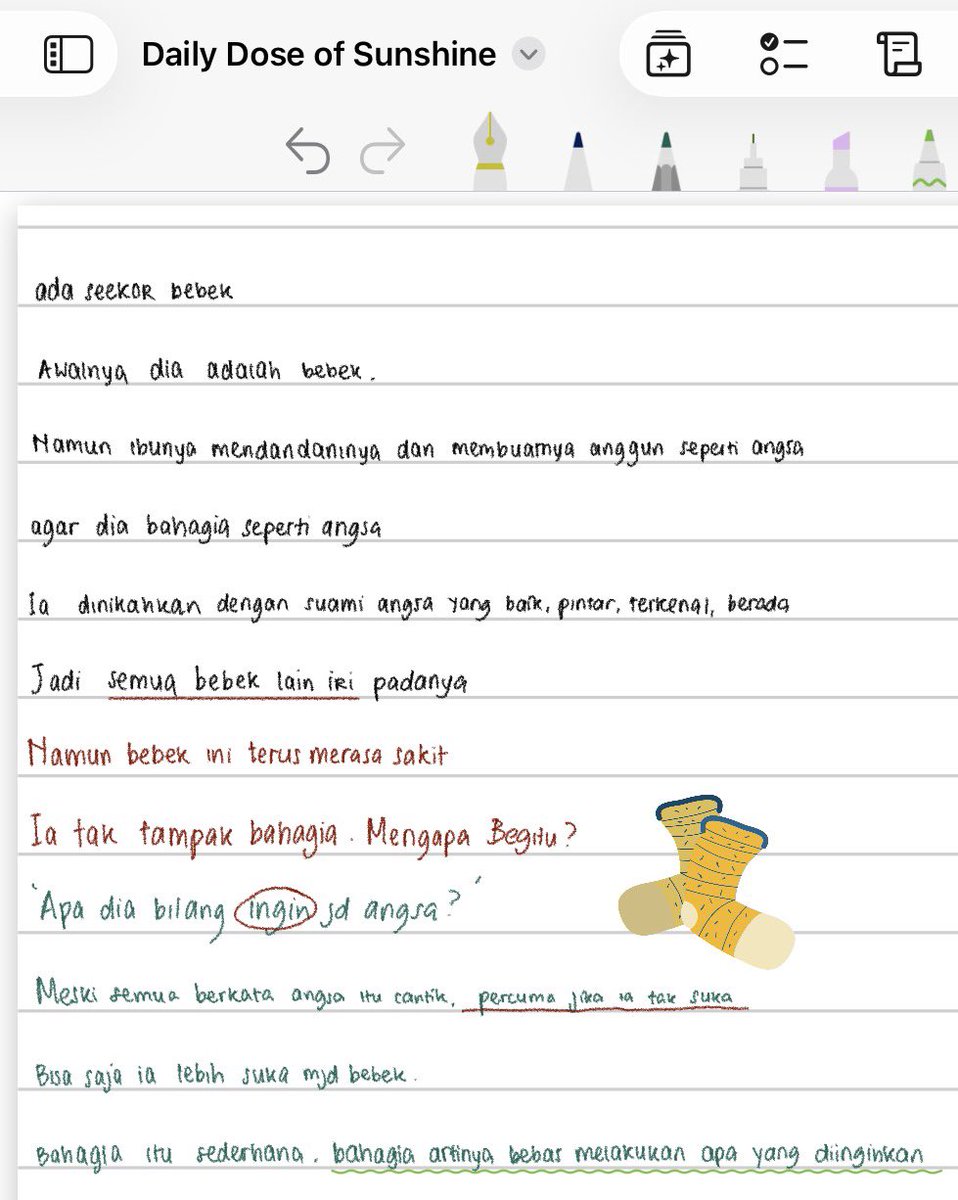 Daily Dose of Sunshine
ada seekor bebek
Awalnya dia adalah bebek.
Namun ibunya mendandaninya dan membuatnya anggun seperti angsa
agar dia bahagia seperti angsa
Ia dinikahkan dengan suami angsa yang baik, pintar, terkenal, berada
Jadi semua bebek lain iri padanya
Namun bebek ini terus merasa sakit
Ia tak tampak bahagia. Mengapa Begitu?
'Apa dia bilang ingin jd angsa?'
Meski semua berkata angsa itu cantik, percuma jika ia tak suka
Bisa saja ia lebih suka mjd bebek.
Bahagia itu sederhana. bahagia artinya bebas melakukan apa yang diinginkan